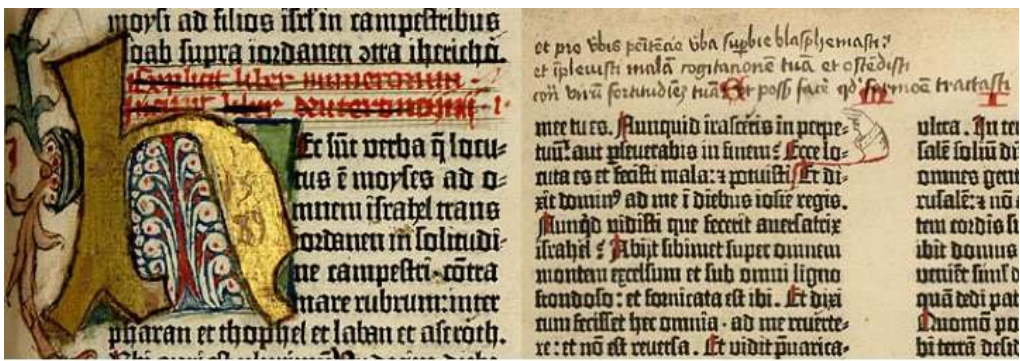 moysi ad filios isrl' in campestribus
moab supra iordanen ɔtra iherichō.
Explicit liber numerorum .
Incipit liber deuteronomij · i ·
hEc sūt verba q̄ locu⸗
tus ē moyses ad o⸗
mnem israhel trans
iordanen in solitudi⸗
ne campestri · cōtra
mare rubrum: inter
pharan et thophel et laban et aseroth.
et pro v̄bis penitēcie v̄ba supbie blasphemasti:
et ip̄leuisti malā cogitationē tuā et ostēdisti
cōt virū fortitudīe tuā Vt poss facē qd̓ sermoē tractasti
mee tu es. Nunquid irasceris in perpe⸗
tuū: aut pseuerabis in finem? Ecce lo⸗
cuta es et fecisti mala: ⁊ potuisti. Et di⸗
xit domin⁹ ad me ī diebus iosie regis.
Nunqd vidisti que fecerit auersatrix
israhel? Abijt sibimet super omnem
montem excelsum et sub omni ligno
frondoso: et fornicata est ibi. Et dixi
cum fecisset hec omnia · ad me reuerte⸗
re: et nō est reuersa. Et vidit p̄uarica⸗
vltra. In te
salē soliū di
omnes gent
rusalē: ⁊ nō a
tem cordis su
ibit domus
veniēt simł d
quā dedi pat
Quomō po
bi terrā desid